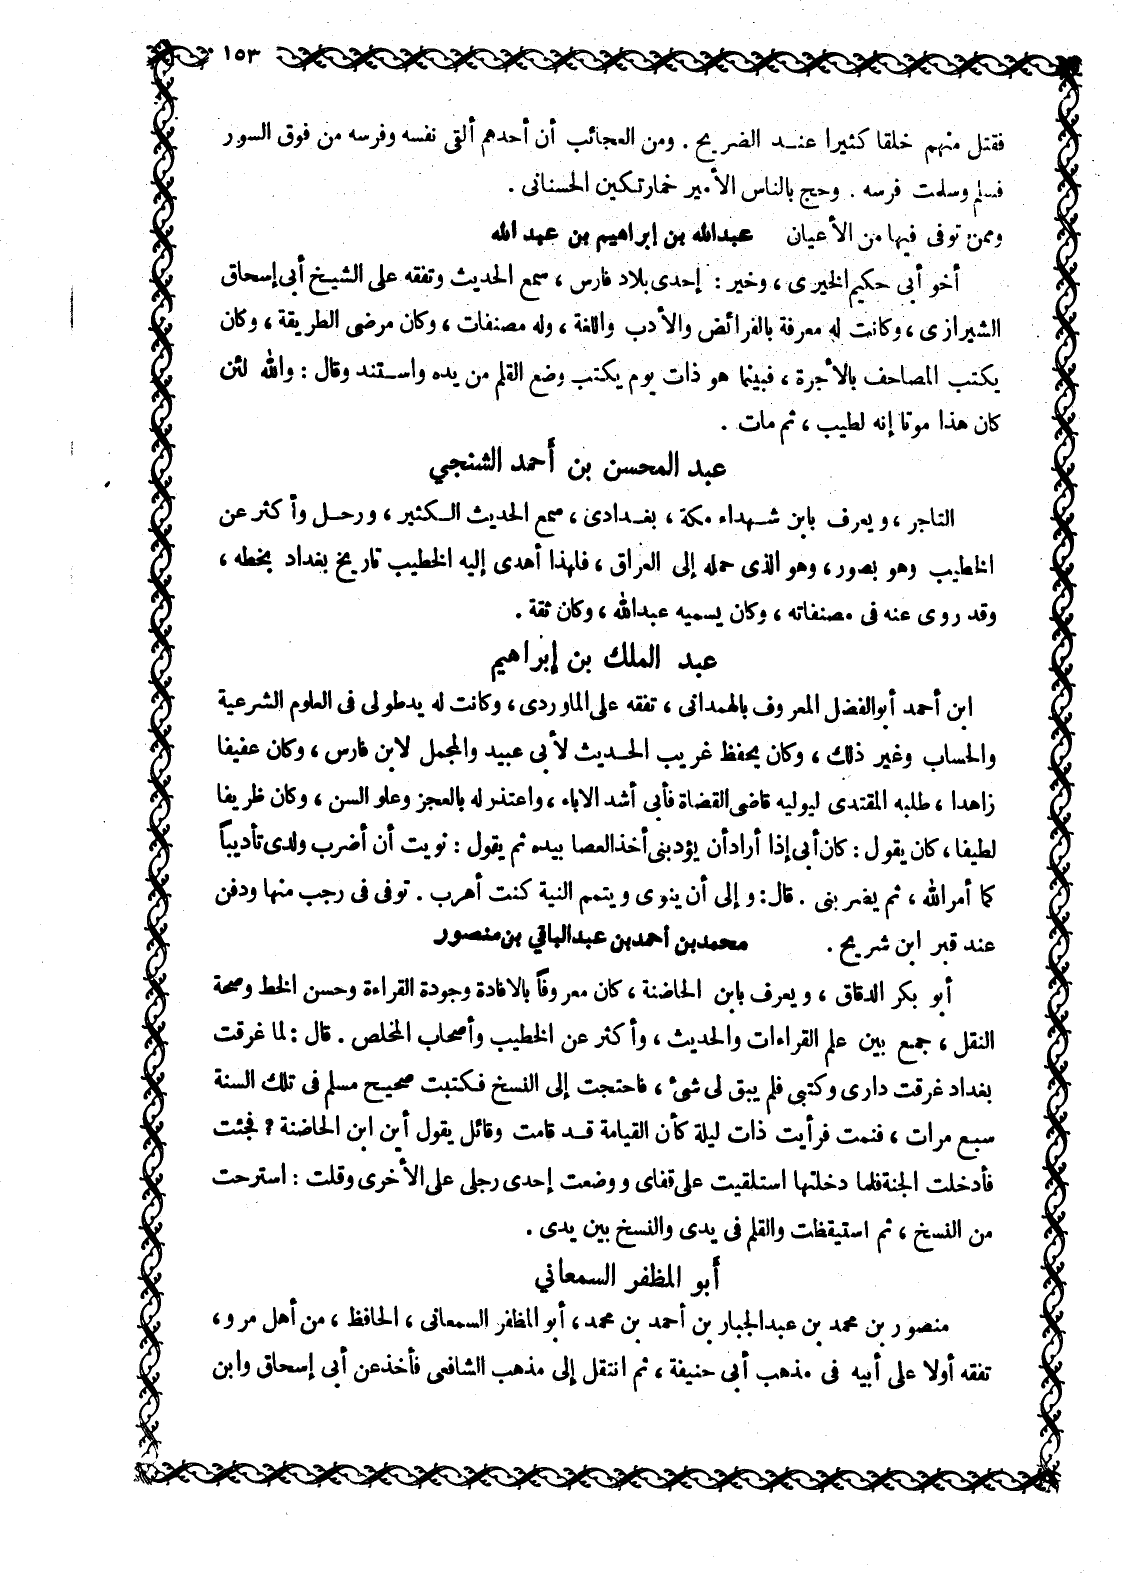 ١٥٣
فقتل منهم خلقا كثيرا عنـد الضريح . ومن العجائب أن أحدهم ألقى نفسه وفرسه من فوق السور
فسلم وسلمت فرسه . وحج بالناس الأمير خمارتكين الحسنانى .
وممن توفى فيها من الأعيان عبدالله بن إبراهيم بن عبد الله
أخو أبى حكيم الخيرى ، وخير : إحدى بلاد فارس ، سمع الحديث وتفقه على الشيخ أبى إسحاق
الشيرازى ، وكانت له معرفة بالفرائض والأدب واللغة ، وله مصنفات ، وكان مرضى الطريقة ، وكان
يكتب المصاحف بالأجرة ، فبينما هو ذات يوم يكتب وضع القلم من يده واستند وقال : والله لئن
كان هذا موتا إنه لطيب ، ثم مات .
عبد المحسن بن أحمد الشنجي
التاجر ، ويعرف بابن شهداء مكة ، بغدادى ، سمع الحديث الكثير ، ورحل وأكثر عن
الخطيب وهو بصور ، وهو الذى حمله إلى العراق ، فلهذا أهدى إليه الخطيب تاريخ بغداد بخطه ،
وقد روى عنه فى مصنفاته ، وكان يسميه عبدالله ، وكان ثقة .
عبد الملك بن إبراهيم
ابن أحمد أبو الفضل المعروف بالهمدانى ، تفقه على الماوردى ، وكانت له يد طولى فى العلوم الشرعية
والحساب وغير ذلك ، وكان يحفظ غريب الحديث لأبى عبيد والمجمل لابن فارس ، وكان عفيفا
زاهدا ، طلبه المقتدى ليوليه قاضى القضاة فأبى أشد الاباء ، واعتذر له بالعجز وعلو السن ، وكان ظريفا
لطيفا ، كان يقول : كان أبى إذا أراد أن يؤدبنى أخذ العصا بيده ثم يقول : نويت أن أضرب ولدى تأديباً
كما أمر الله ، ثم يضربنى . قال : وإلى أن ينوى ويتمم النية كنت أهرب . توفى فى رجب منها ودفن
عند قبر ابن شريح . محمد بن أحمد بن عبدالباقي بن منصور
أبو بكر الدقاق ، ويعرف بابن الحاضنة ، كان معروفاً بالافادة وجودة القراءة وحسن الخط وصحة
النقل ، جمع بين علم القراءات والحديث ، وأكثر عن الخطيب وأصحاب المخلص . قال : لما غرقت
بغداد غرقت دارى وكتبى فلم يبق لى شئ ، فاحتجت إلى النسخ فكتبت صحيح مسلم فى تلك السنة
سبع مرات ، فنمت فرأيت ذات ليلة كأن القيامة قد قامت وقائل يقول أين ابن الحاضنة ? فجئت
فأدخلت الجنة فلما دخلتها استلقيت على قفاى ووضعت إحدى رجلى على الأخرى وقلت : استرحت
من النسخ ، ثم استيقظت والقلم فى يدى والنسخ بين يدى .
أبو المظفر السمعاني
منصور بن محمد بن عبدالجبار بن أحمد بن محمد ، أبو المظفر السمعانى ، الحافظ ، من أهل مرو ،
تفقه أولا على أبيه فى مذهب أبى حنيفة ، ثم انتقل إلى مذهب الشافعى فأخذ عن أبى إسحاق وابن